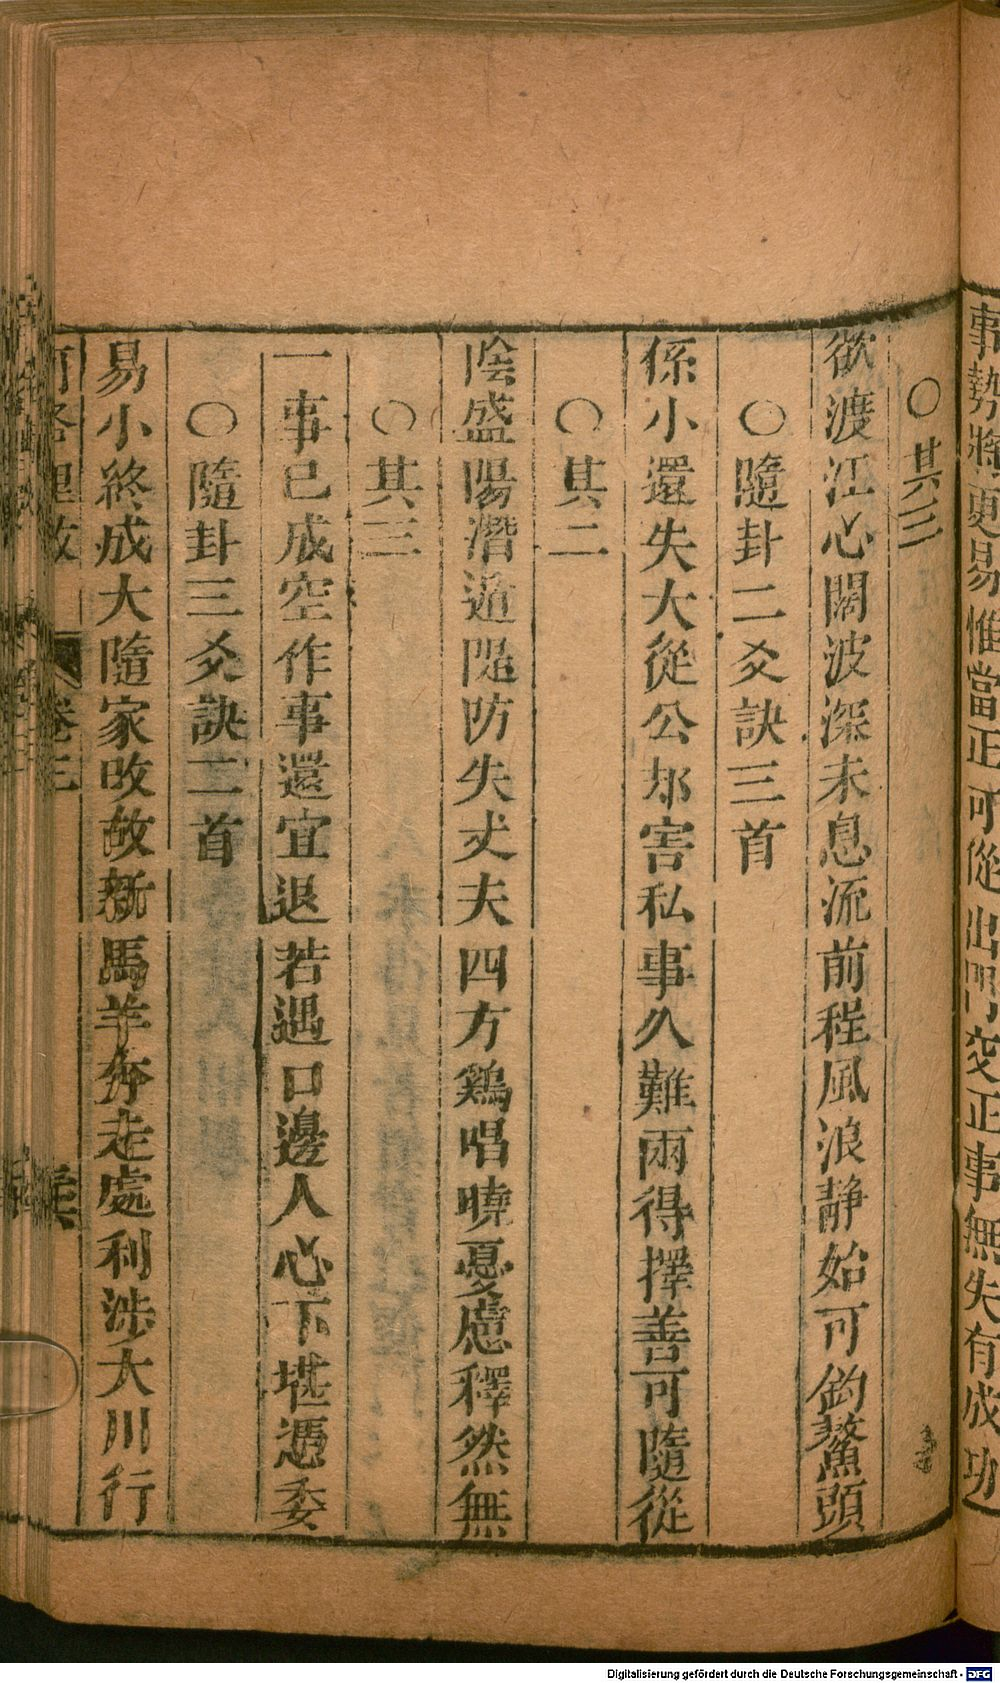 事勢將更易惟當正可從出門交正事無失有成功
○其三
欲渡江心闊波深未息流前程風浪靜始可釣鰲頭
○隨卦二爻訣三首
係小還失大從公却害私事久難雨得擇善可隨從
○其二
陰盛陽潛遁隄防失丈夫四方鷄唱曉憂慮釋然無
○其三
一事已成空作事還宜退若遇口邊人心下堪憑委
○隨卦三爻訣二首
易小終成大隨家改故新馬羊奔走處利涉大川行
卷三
Digitalisierung gefördert durch die Deutsche Forschungsgemeinschaft - DFG